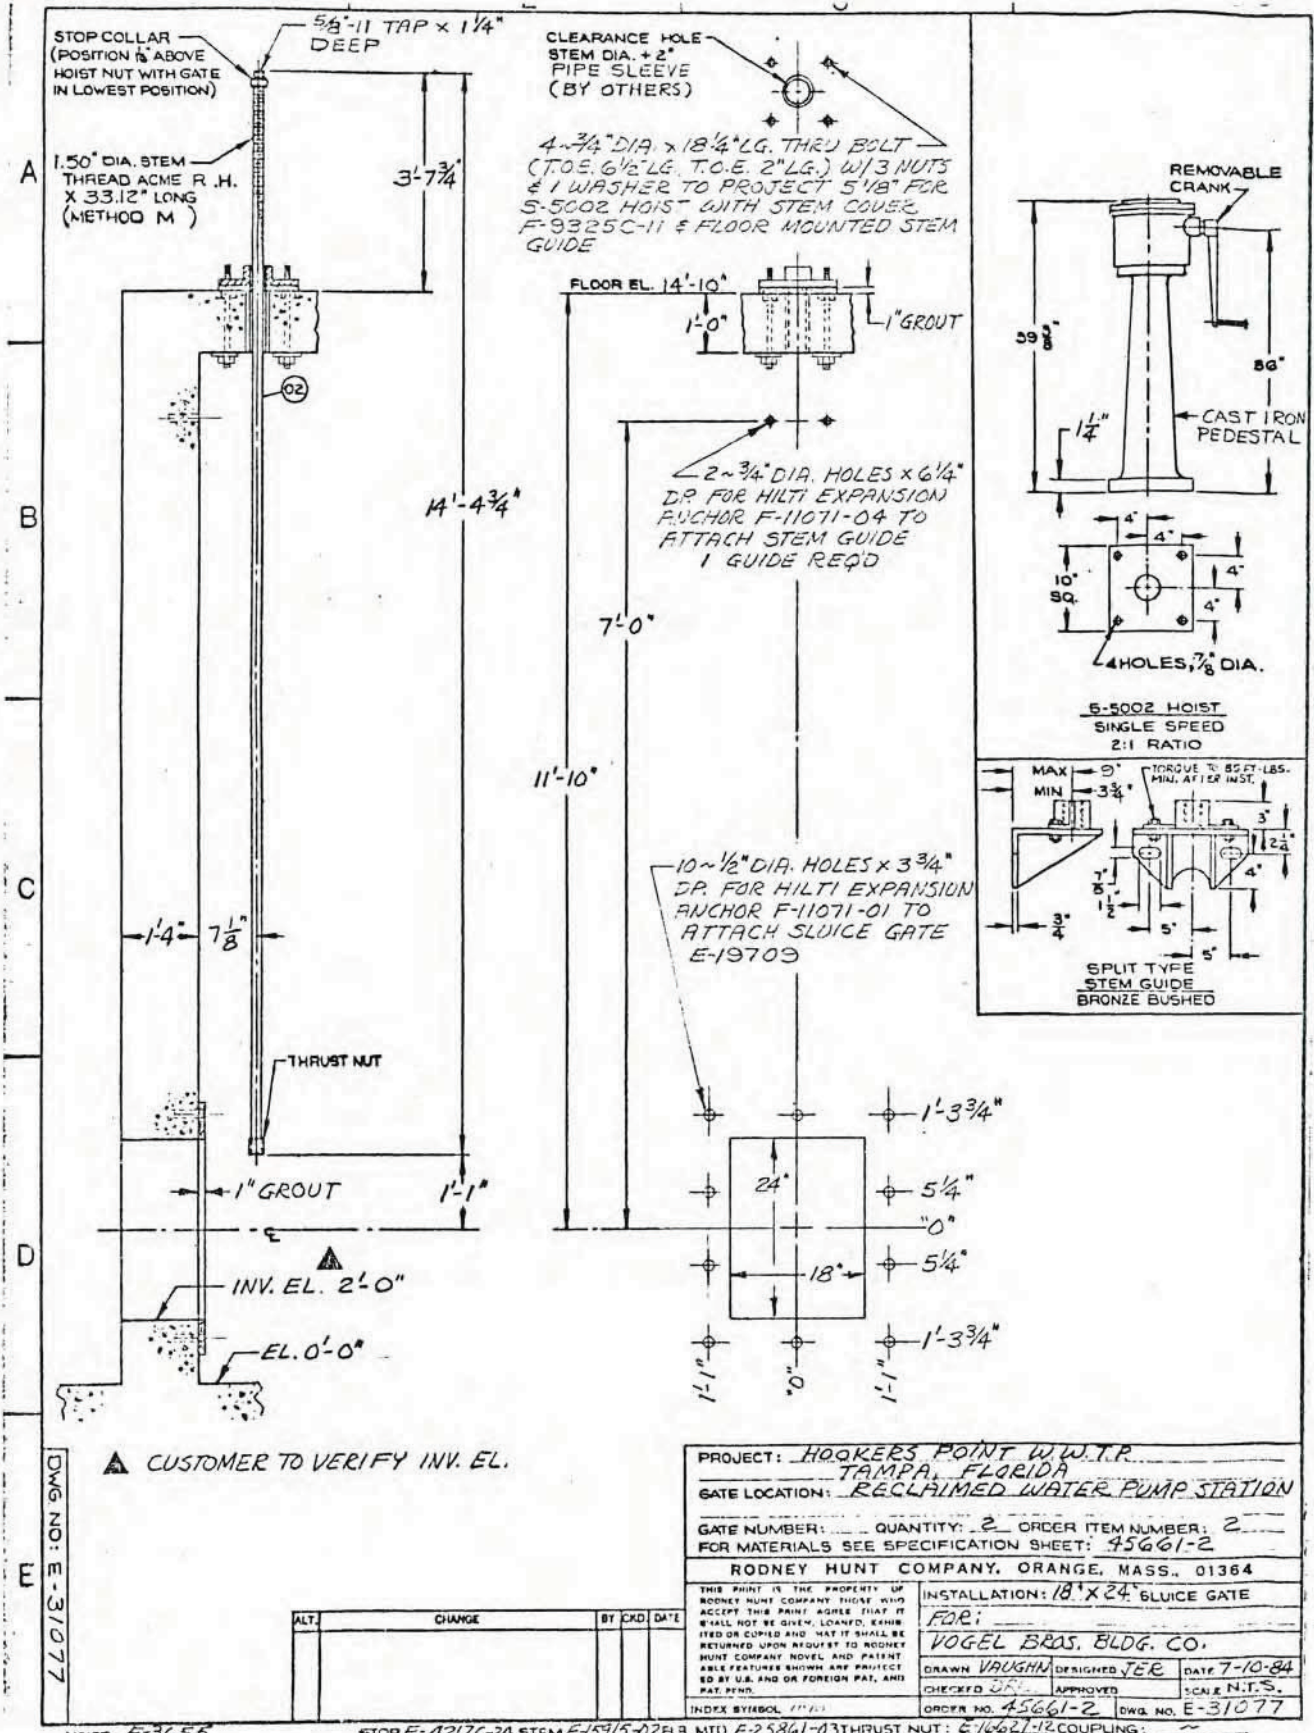 5/8"-11 TAP x 1 1/4"
DEEP
STOP COLLAR
(POSITION 1/8" ABOVE
HOIST NUT WITH GATE
IN LOWEST POSITION)
1.50" DIA. STEM
THREAD ACME R.H.
X 33.12" LONG
(METHOD M )
3'-7 3/4"
CLEARANCE HOLE
STEM DIA. + 2"
PIPE SLEEVE
(BY OTHERS)
4~3/4" DIA. x 18 1/4" LG. THRU BOLT
(T.O.E. 6 1/2" LG. T.O.E. 2" LG.) W/3 NUTS
& 1 WASHER TO PROJECT 5 1/8" FOR
S-5002 HOIST WITH STEM COVER
F-9325C-11 & FLOOR MOUNTED STEM
GUIDE
FLOOR EL. 14'-10"
1'-0"
1" GROUT
02
14'-4 3/4"
2~3/4" DIA. HOLES x 6 1/4"
DP. FOR HILTI EXPANSION
ANCHOR F-11071-04 TO
ATTACH STEM GUIDE
1 GUIDE REQ'D
7'-0"
11'-10"
10~1/2" DIA. HOLES x 3 3/4"
DP. FOR HILTI EXPANSION
ANCHOR F-11071-01 TO
ATTACH SLUICE GATE
E-19709
1'-4"
7 1/8"
THRUST NUT
1" GROUT
1'-1"
℄
INV. EL. 2'-0"
EL. 0'-0"
1'-3 3/4"
5 1/4"
"0"
5 1/4"
1'-3 3/4"
24"
18"
1'-1"
"0"
1'-1"
REMOVABLE
CRANK
36"
1 1/4"
CAST IRON
PEDESTAL
4"
4"
10"
SQ.
4"
4"
4 HOLES, 7/8" DIA.
S-5002 HOIST
SINGLE SPEED
2:1 RATIO
MAX 9"
MIN 3 3/4"
TORQUE TO 85 FT-LBS.
MIN. AFTER INST.
3"
2 1/4"
4"
7/8"
1 1/2"
3/4"
5"
5"
SPLIT TYPE
STEM GUIDE
BRONZE BUSHED
CUSTOMER TO VERIFY INV. EL.
DWG NO: E-31077
PROJECT: HOOKERS POINT W.W.T.P.
TAMPA, FLORIDA
GATE LOCATION: RECLAIMED WATER PUMP STATION
GATE NUMBER: QUANTITY: 2 ORDER ITEM NUMBER: 2
FOR MATERIALS SEE SPECIFICATION SHEET: 45661-2
RODNEY HUNT COMPANY, ORANGE, MASS., 01364
THIS PRINT IS THE PROPERTY OF
RODNEY HUNT COMPANY THOSE WHO
ACCEPT THIS PRINT AGREE THAT IT
SHALL NOT BE GIVEN, LOANED, EXHIB
ITED OR COPIED AND THAT IT SHALL BE
RETURNED UPON REQUEST TO RODNEY
HUNT COMPANY NOVEL AND PATENT
ABLE FEATURES SHOWN ARE PROTECT
ED BY U.S. AND OR FOREIGN PAT. AND
PAT. PEND.
INDEX SYMBOL
INSTALLATION: 18" X 24" SLUICE GATE
FOR:
VOGEL BROS. BLDG. CO.
DRAWN VAUGHN DESIGNED JER DATE 7-10-84
CHECKED APPROVED SCALE N.T.S.
ORDER NO. 45661-2 DWG. NO. E-31077
ALT. CHANGE BY CKD. DATE
THRUST NUT: E-16621-12 COUPLING: